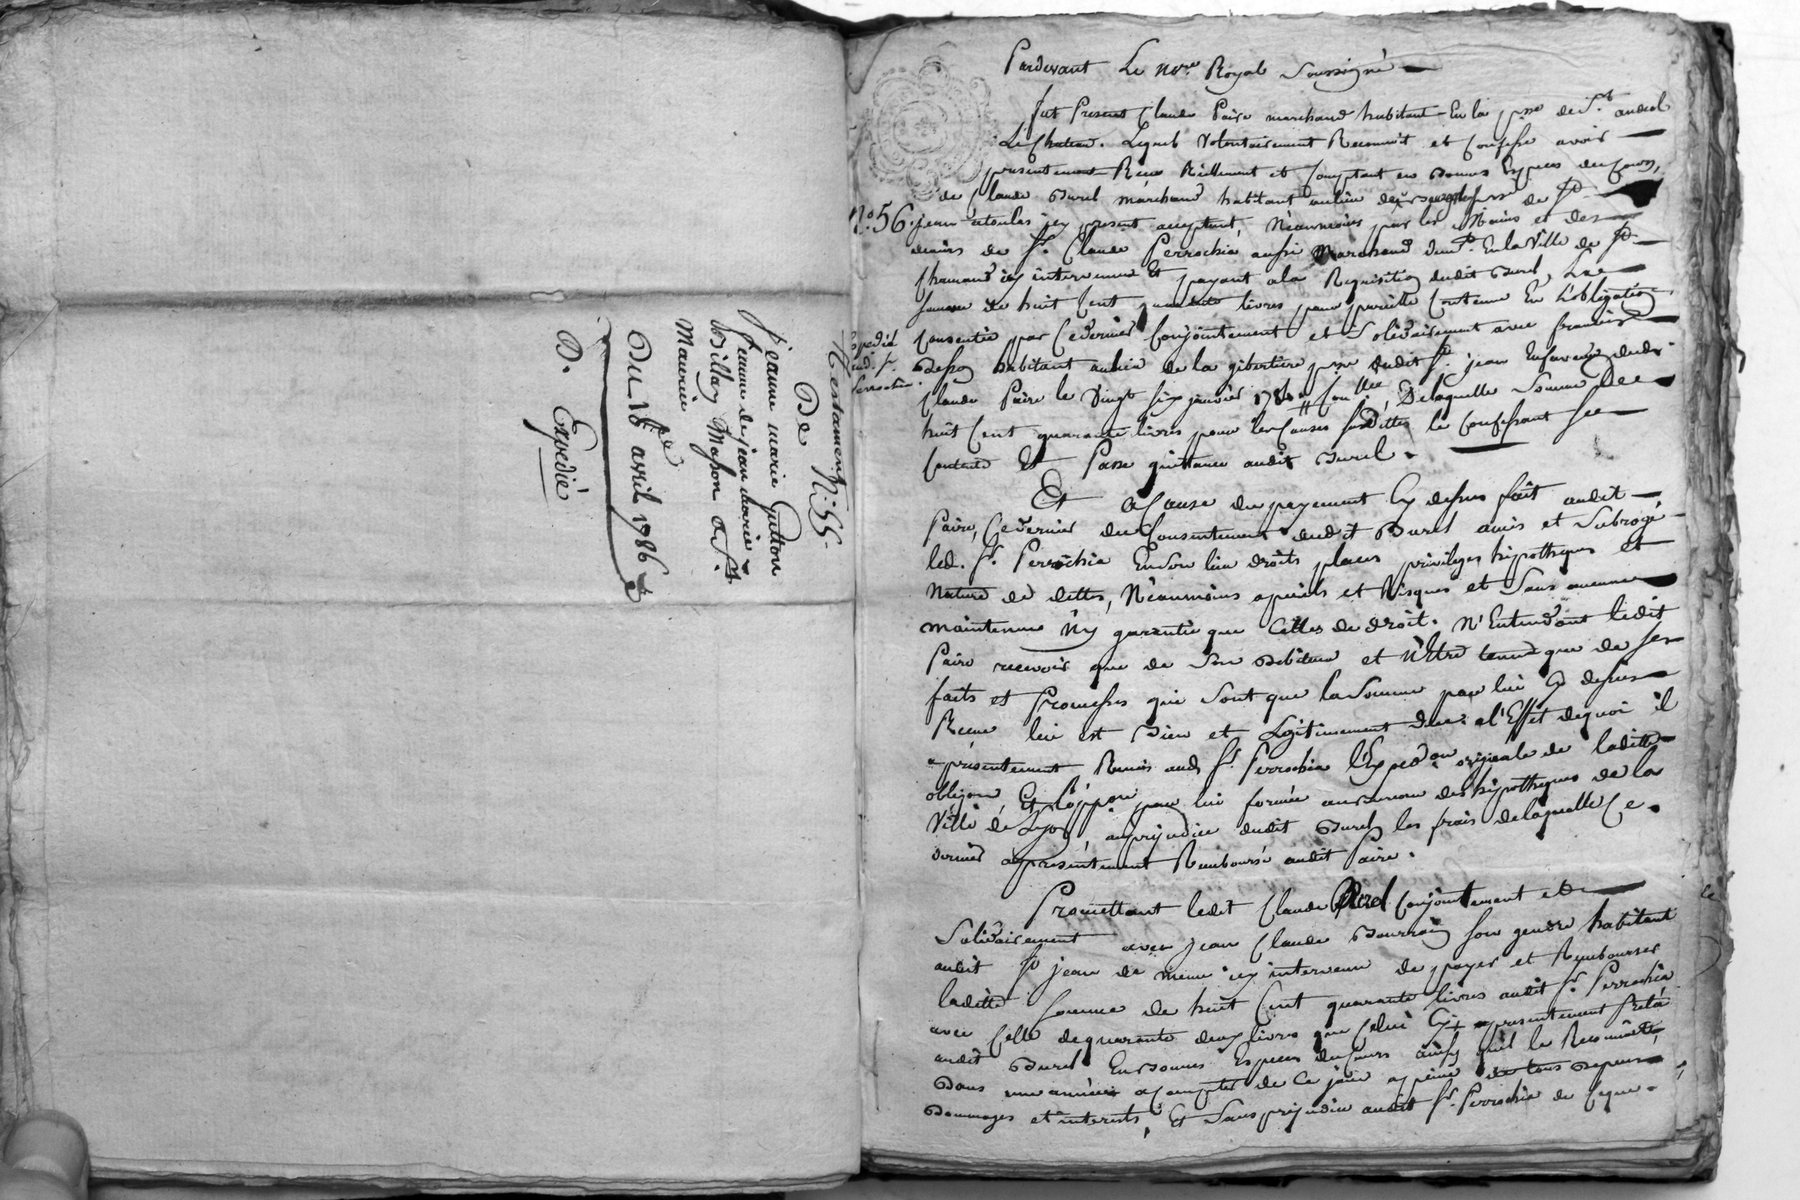 Testament N.° 55.
De
Jeanne marie Guittou
femme de jean marie
Billay Masson a St.
Maurice
Du 16e avril 1786
D. Expedié
Pardevant Le Nore. Royal Soussigné
fut Present Claude Paire marchand habitant En la psse de St. andeol
Le Chateau. Lequel Volontairement Reconnoit et Confesse avoir
presentement Recu Réellement et Comptant en Bonnes Especes du Cours,
de Claude Burel marchand habitant au lieu de psse de St.
N.° 56. jean icy present acceptant, Néanmoins par les Mains et des
deniers de Sr. Claude Perrochia aussi Marchand demt. En la Ville de St.
Chamond icy intervenu Et payant a la Requisition dudit Burel, La
somme de huit Cent quarante livres pour pareille Contenue En L'obligation
Expedié
aud. Sr.
Perrochia.
Consentie par Ce dernier Conjointement et Solidairement avec francois
habitant au lieu de la gibertiere psse dudit St. jean En faveur dudit
Claude Paire le Vingt six janvier Conllée, De laquelle Somme De
huit Cent quarante livres pour les Causes susdittes le Confessant se
Contente Et Passe quittance audit Burel.
Et a Cause du payement Cy dessus fait audit
Paire, Ce dernier du Consentement dudit Burel amis et Subrogé
led. Sr. Perrochia En son lieu droits places privileges hypotheques et
Nature de dettes, Néanmoins a perils et Risques et Sans aucune
maintenue Ny garantie que Celles de droit. N'Entendant ledit
Paire recevoir que de Son debiteur et N'Etre tenu que de Ses
faits et Promesses qui Sont que la Somme par lui Cy dessus
Recue lui est Bien et Légitimement due: a l'Effet dequoi il
a presentement Remis aud. Sr. Perrochia l'Expedon. originale de laditte
obligon. Et l'oppon. par lui formée au Bureau des hypotheques de la
Ville de Lyon, au prejudice dudit Burel les frais de laquelle Ce
dernier a presentement Remboursé audit Paire.
Promettant ledit Claude Burel Conjointement et
Solidairement avec jean Claude Bourrin son gendre habitant
audit St. jean de meme icy intervenu de payer et Rembourser
laditte Somme de huit Cent quarante livres audit Sr. Perrochia
avec Celle de quarante deux livres que Celui Cy a presentement Preté
audit Burel En Bonnes Especes du Cours ainsy qu'il le Reconnoit,
Dans une année a Compter de Ce jour a peine de tous Depens
Dommages et interests, Et Sans prejudice audit Sr. Perrochia de Ce que